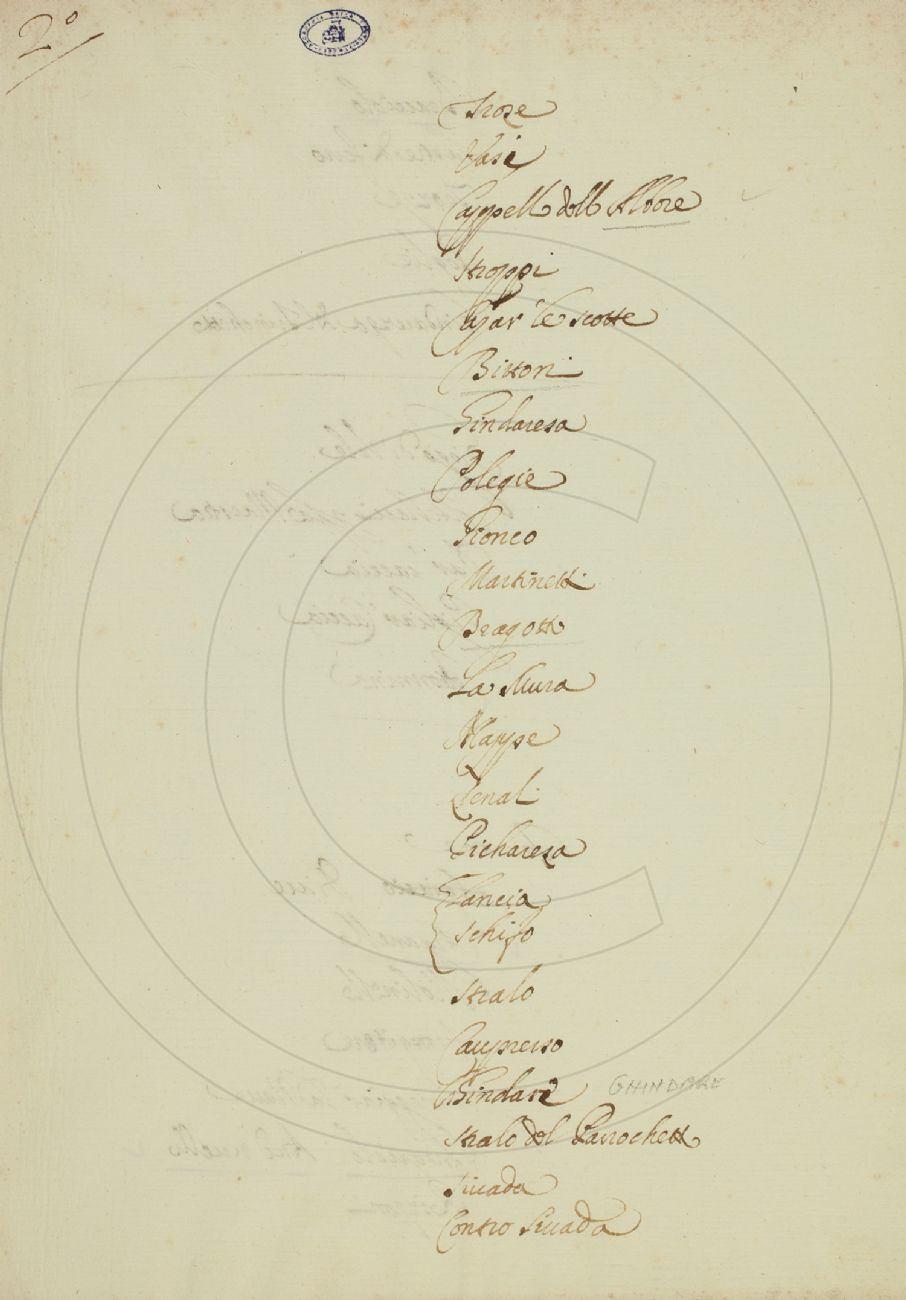 2º
Stroze
Vasi
Cappello dell Albore
Stroppi
Cazar le scotte
Bittoni
Gindaresa
Polegie
Fionco
Martinetti
Bragotto
La Mura
Mappe
Penal
Picharesa
Lancia
Schifo
Stralo
Caupresso
Ghindare GHINDARE
Stralo del Parrochetto
Siuada
Contro Siuada